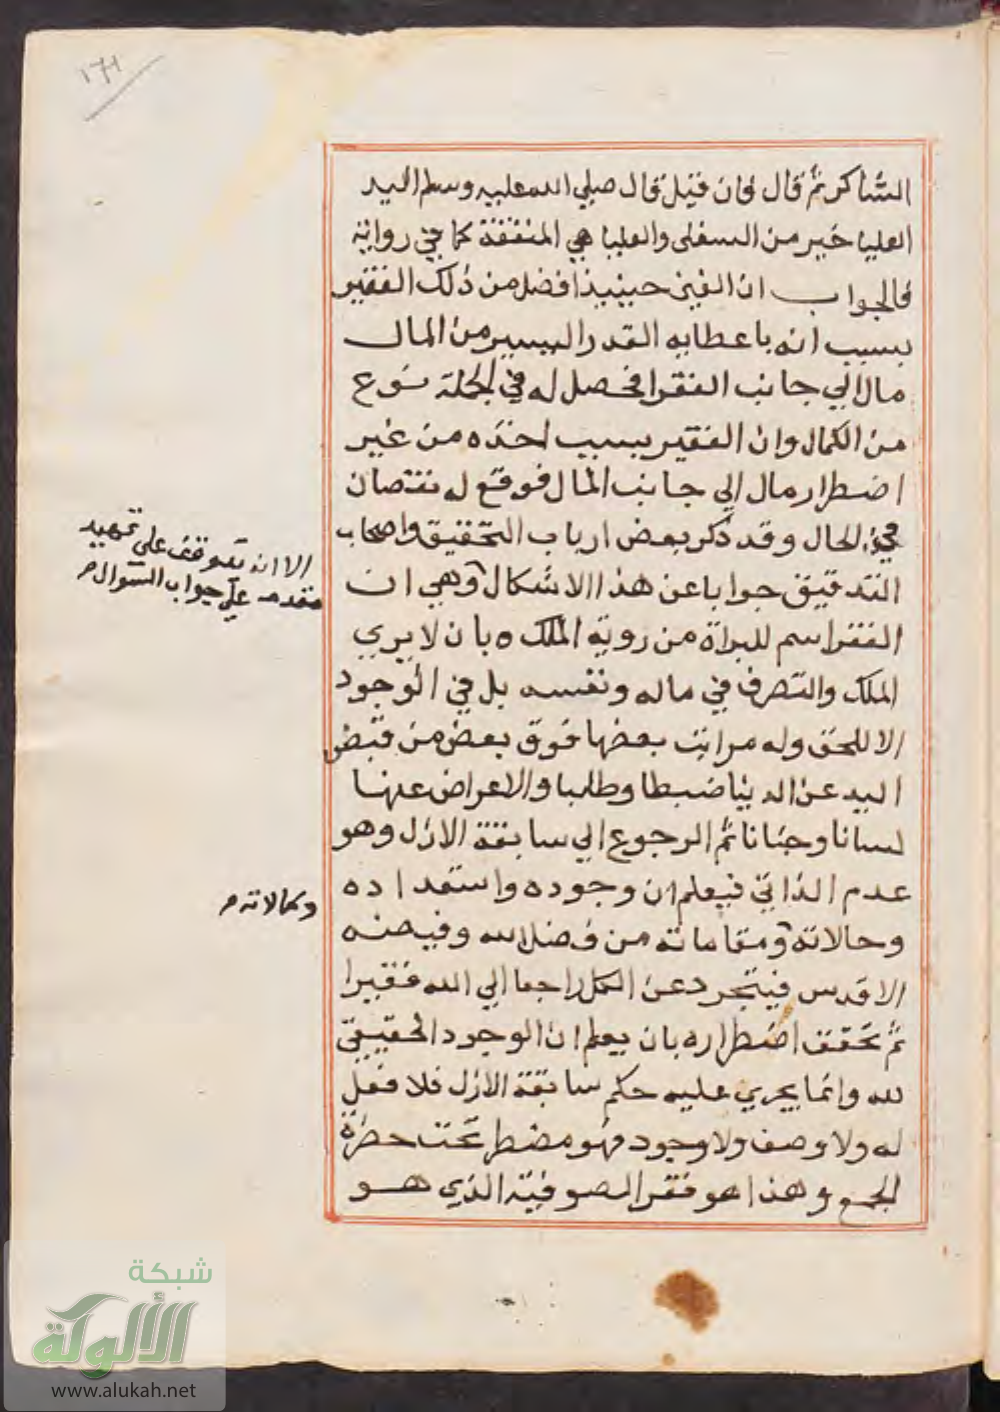 ١٦٩
الشاكر ثم قال فان قيل قال صلي الله عليه وسلم اليد
العليا خير من السفلى والعليا هي المنفقة كما في رواية
فالجواب ان الغني حينيذ افضل من ذلك الفقير
بسبب انه باعطايه القدر اليسير من المال
مال الي جانب الفقرا فحصل له في الجملة نوع
من الكمال وان الفقير بسبب اخذه من غير
اضطرار مال الي جانب المال فوقع له نقصان
في الحال وقد ذكر بعض ارباب التحقيق واصحاب
التدقيق جوابا عن هذا الاشكال وهي ان
الفقر اسم للبراة من روية الملكه بان لا يري
الملك والتصرف في ماله ونفسه بل في الوجود
الا للحق وله مراتب بعضها فوق بعض من قبض
اليد عن الدنيا ضبطا وطلبا والاعراض عنها
لسانا وجنانا ثم الرجوع الي سابقة الازل وهو
عدم الذاتي فيعلم ان وجوده واستعداده
وحالاته ومقاماته من فضل الله وفيضه
الاقدس فيتجرد عن الكل راجعا الي الله فقيرا
ثم تحقق اضطراره بان يعلم ان الوجود الحقيقي
لله وانما يجري عليه حكم سابقة الازل فلا فعل
له ولا وصف ولا وجود فهو مضطر تحت حضرة
الجمع وهذا هو فقر الصوفية الذي هو
الا انه تتوقف على تمهيد
مقدمه علي جواب السوال م
وكمالاته م
شبكة
الألوكة
www.alukah.net